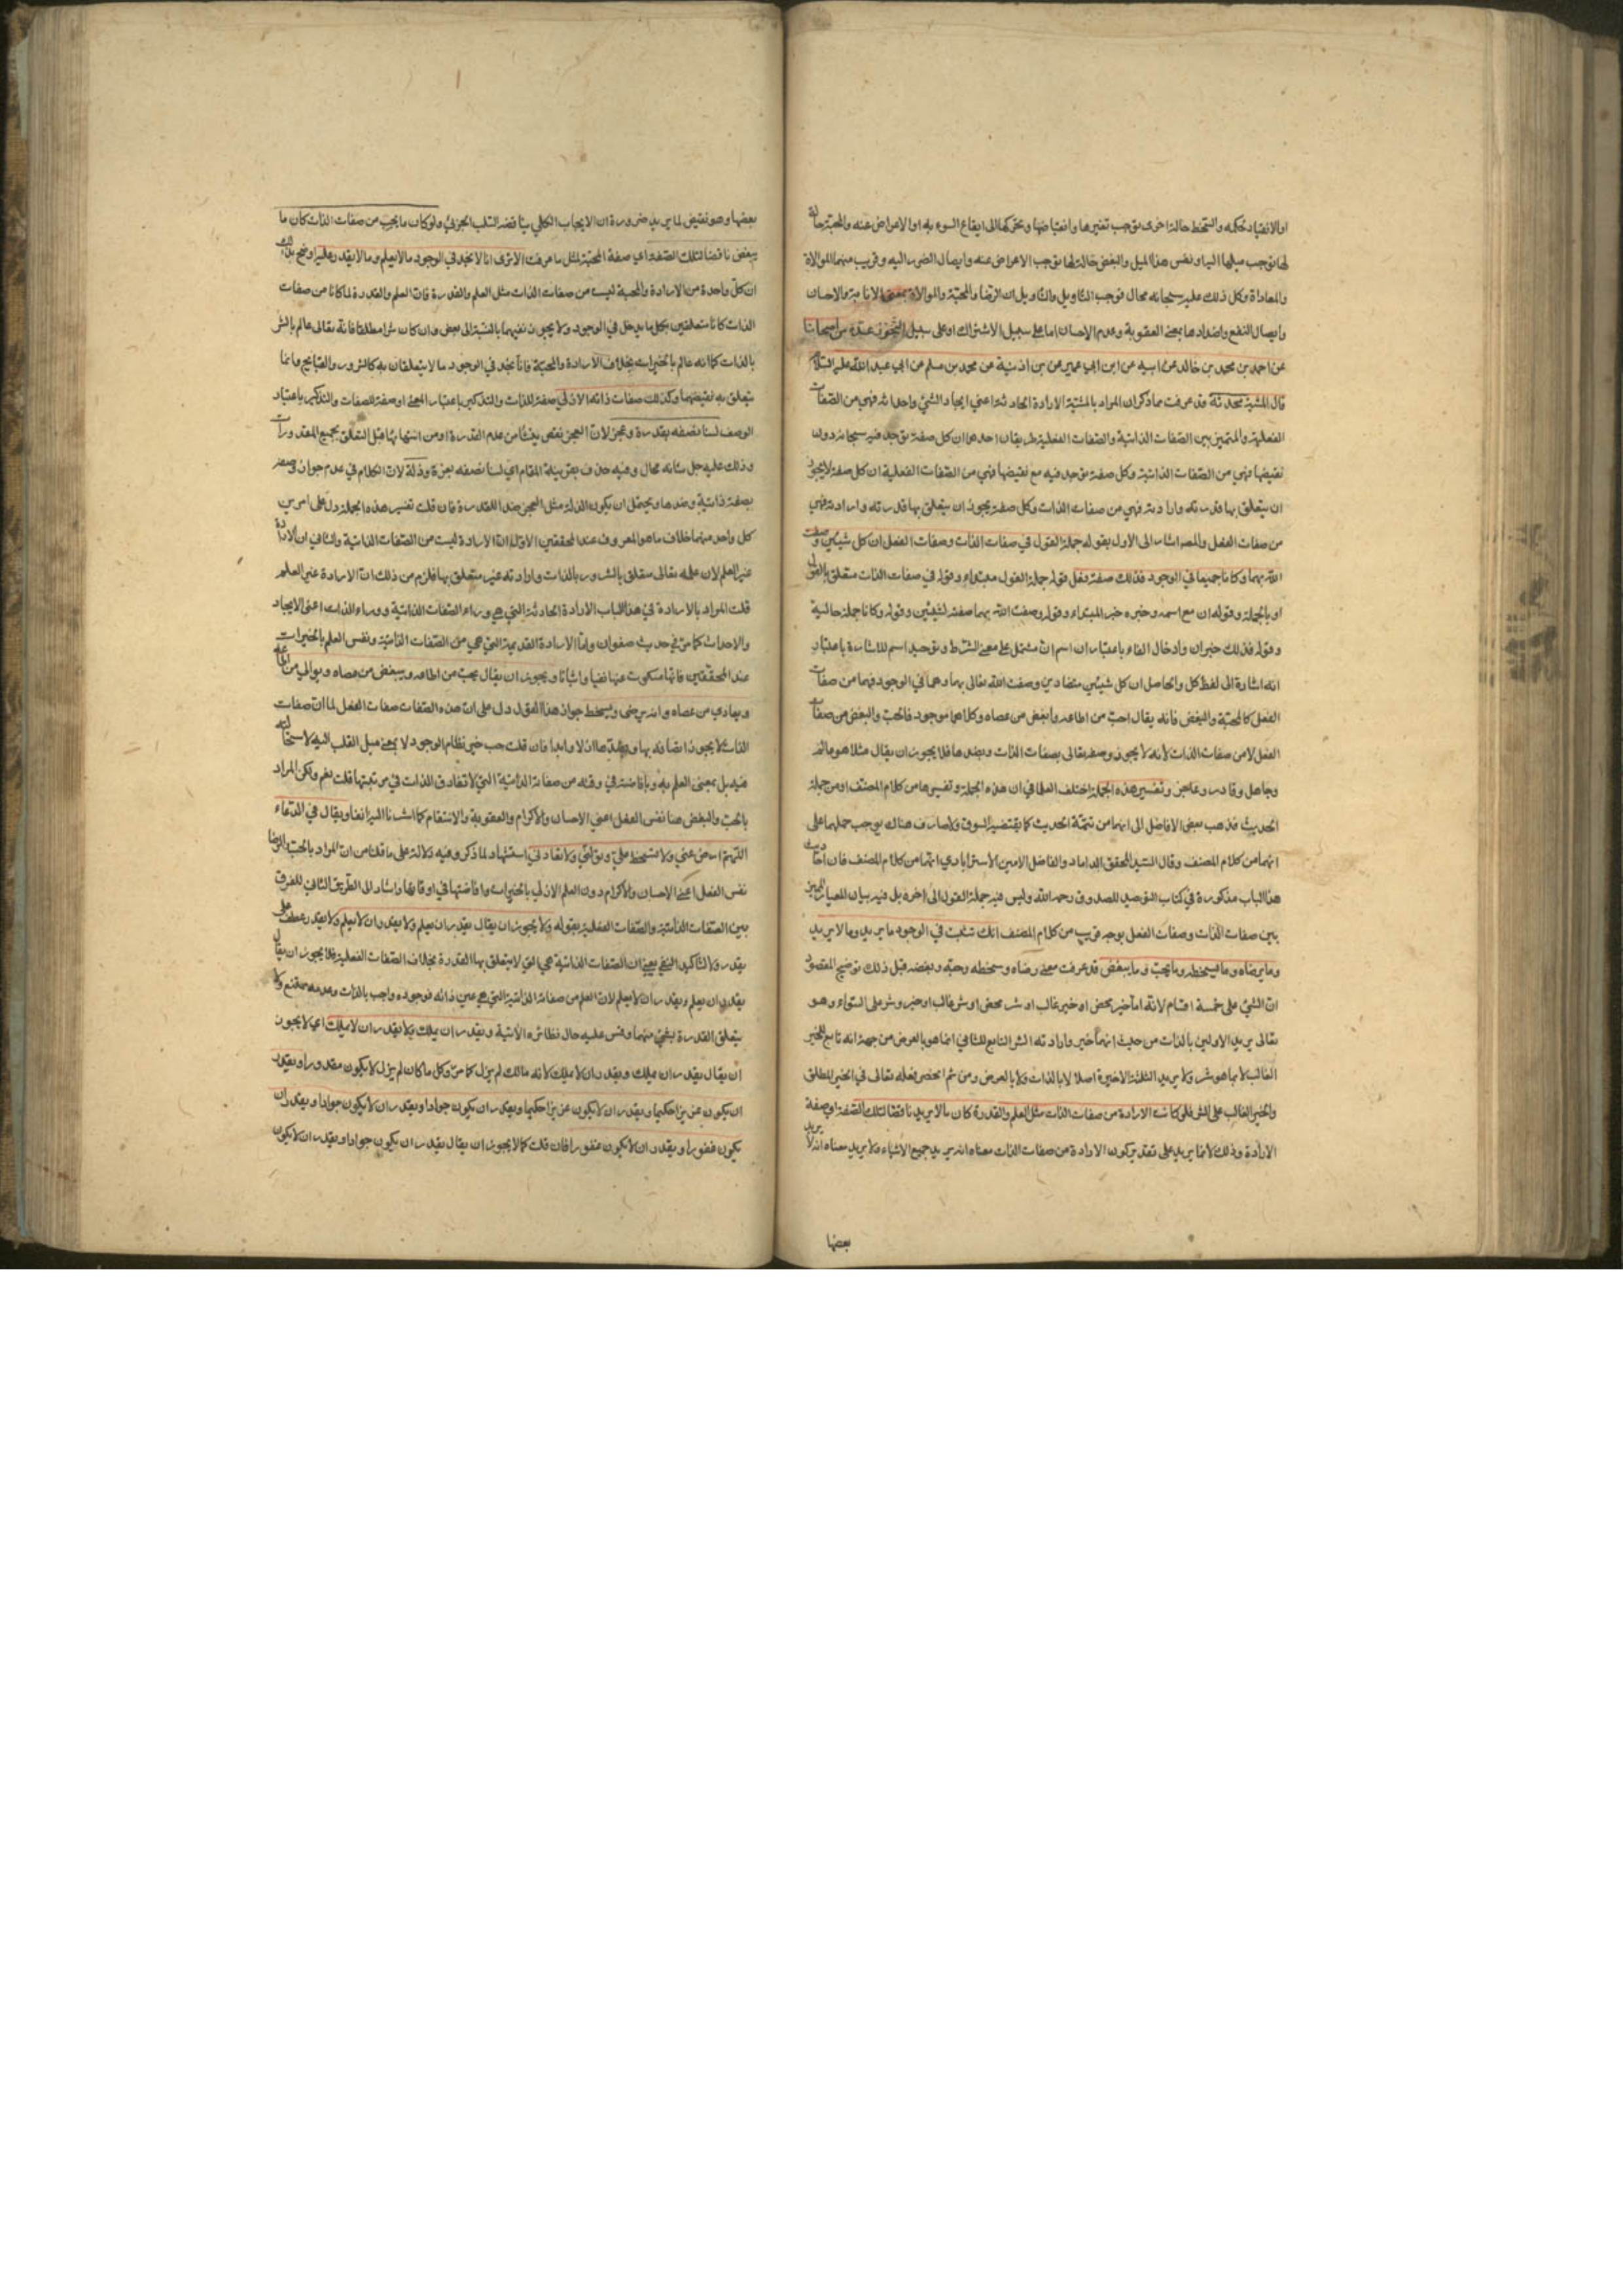 او الانقياد لحكمه والسخط حالة اخرى توجب تغيرها وانقباضها وتحركها الى ايقاع السوء به او الاعراض عنه والمحبة حالة
لها توجب ميلها اليه او نفس هذا الميل والبغض حالة لها توجب الاعراض عنه وايصال الضرر اليه وقريب منهما الموالاة
والمعاداة وكل ذلك عليه سبحانه محال فوجب التاويل والتاويل ان الرضا والمحبة والموالاة بمعنى الاثابة والاحسان
وايصال النفع واضدادها بمعنى العقوبة وعدم الاحسان اما على سبيل الاشتراك او على سبيل التجوز عدة من اصحابنا
عن احمد بن محمد بن خالد عن ابيه عن ابن ابي عمير عن بن اذينة عن محمد بن مسلم عن ابي عبد الله عليه السلام
قال المشية محدثة قد عرفت مما ذكر ان المراد بالمشية الارادة الحادثة اعني ايجاد الشئ واحداثه فهي من الصفات
الفعلية والتميز بين الصفات الذاتية والصفات الفعلية طريقان احدهما ان كل صفة توجد فيه سبحانه دون
نقيضها فهي من الصفات الذاتية وكل صفة توجد فيه مع نقيضها فهي من الصفات الفعلية ان كل صفة لا يجوز
ان يتعلق بها قدرته وارادته فهي من صفات الذات وكل صفة يجوز ان يتعلق بها قدرته وارادته فهي
من صفات الفعل والمص اشار الى الاول بقوله جملة القول في صفات الذات وصفات الفعل ان كل شيئين وصفت
الله بهما وكانا جميعا في الوجود فذلك صفة فعل قوله جملة القول مبتداء وقوله في صفات الذات متعلق بالقول
او بالجملة وقوله ان مع اسمه وخبره خبر المبتداء وقوله وصفت الله بهما صفة لشيئين وقوله وكانا جملة حالية
وقوله فذلك خبر ان وادخال الفاء باعتبار ان اسم ان مشتمل على معنى الشرط وتوحيد اسم الاشارة باعتبار
انه اشارة الى لفظ كل والحاصل ان كل شيئين متضادين وصفت الله تعالى بهما وهما في الوجود فهما من صفات
الفعل كالمحبة والبغض فانه يقال احب من اطاعه وابغض من عصاه وكلاهما موجود فالحب والبغض من صفات
الفعل لا من صفات الذات لانه لا يجوز وصفه تعالى بصفات الذات وبضدها فلا يجوز ان يقال مثلا هو عالم
وجاهل وقادر وعاجز وتفسير هذه الجملة اختلف العلما في ان هذه الجملة وتفسيرها من كلام المصنف او من جملة
الحديث فذهب بعض الافاضل الى انهما من تتمة الحديث كما يقتضيه السوق ولا صارف هناك يوجب حملهما على
انهما من كلام المصنف وقال السيد المحقق الداماد والفاضل الامين الاسترابادي انهما من كلام المصنف فان احاديث
هذا الباب مذكورة في كتاب التوحيد للصدوق رحمه الله وليس فيه جملة القول الى اخره بل فيه بيان المعيار المميز
بين صفات الذات وصفات الفعل بوجه قريب من كلام المصنف انك تثبت في الوجود ما يريد وما لا يريد
وما يرضاه وما يسخطه وما يحب وما يبغض قد عرفت معنى رضاه وسخطه وحبه وبغضه قبل ذلك توضيح المقصود
ان الشئ على خمسة اقسام لانه اما خير محض او خير غالب او شر محض او شر غالب او خير وشر على السواء وهو
تعالى يريد الاولين بالذات من حيث انهما خير وارادته الشر التابع للثاني انما هو بالعرض من جهة انه تابع للخير
الغالب لا بما هو شر ولا يريد الثلثة الاخيرة اصلا لا بالذات ولا بالعرض ومن ثم انحصر فعله تعالى في الخير المطلق
والخير الغالب على الشر فلو كانت الارادة من صفات الذات مثل العلم والقدرة كان ما لا يريد ناقضا لتلك الصفة اي صفة
الارادة وذلك لان ما يريد على تقدير كون الارادة من صفات الذات معناه انه يريد جميع الاشياء ولا يريد معناه انه لا يريد
بعضها
بعضها وهو نقيض لما يريد ضرورة ان الايجاب الكلي يناقضه السلب الجزئي ولو كان ما يحب من صفات الذات كان ما
يبغض ناقضا لتلك الصفة اي صفة المحبة لمثل ما عرفت الا ترى انا لا نجد في الوجود ما لا يعلم وما لا يقدر عليه اوضح بذلك
ان كل واحدة من الارادة والمحبة ليست من صفات الذات مثل العلم والقدرة فان العلم والقدرة لما كانا من صفات
الذات كانا متعلقين بكل ما يدخل في الوجود ولا يجوز نفيهما بالنسبة الى بعض وان كان شرا مطلقا فانه تعالى عالم بالشر
بالذات كما انه عالم بالخيرات بخلاف الارادة والمحبة فانا نجد في الوجود ما لا يتعلقان به كالشرور والقبايح وانما
يتعلق به نقيضهما وكذلك صفات ذاته الازلي صفة للذات والتذكير باعتبار المعنى او صفة للصفات والتذكير باعتبار
الوصف لسنا نصفه بقدرة وعجز لان العجز نقص ينشأ من عدم القدرة او من انتهائها قبل التعلق بجميع المقدورات
وذلك عليه جل شانه محال وفيه حذف بقرينة المقام اي لسنا نصفه بعزة وذلة لان الكلام في عدم جواز وصفه
بصفة ذاتية وضدها ويحتمل ان يكون الذلة مثل العجز ضدا للقدرة فان قلت تفسير هذه الجملة دل على امرين
كل واحد منهما خلاف ما هو المعروف عند المحققين الاول ان الارادة ليست من الصفات الذاتية والثاني ان الارادة
غير العلم لان علمه تعالى متعلق بالشرور بالذات وارادته غير متعلق بها فلزم من ذلك ان الارادة غير العلم
قلت المراد بالارادة في هذا الباب الارادة الحادثة التي هي وراء الصفات الذاتية ووراء الذات اعني الايجاد
والاحداث كما مر في حديث صفوان واما الارادة القديمة التي هي من الصفات الذاتية ونفس العلم بالخيرات
عند المحققين فانها مسكوت عنها نفيا واثباتا ويجوز ان يقال يحب من اطاعه ويبغض من عصاه ويوالي من اطاعه
ويعادي من عصاه وانه يرضى ويسخط جواز هذا القول دل على ان هذه الصفات صفات الفعل لما ان صفات
الذات لا يجوز اتصافه بها وبضدها ازلا وابدا فان قلت حب خير نظام الوجود لا بمعنى ميل القلب اليه لاستحالته
فيه بل بمعنى العلم به وبافاضته في وقته من صفاته الذاتية التي لا تفارق الذات في مرتبتها قلت نعم ولكن المراد
بالحب والبغض هنا نفس الفعل اعني الاحسان والاكرام والعقوبة والانتقام كما اشرنا اليه انفا ويقال في الدعاء
اللهم ارض عني ولا تسخط علي وتولني ولا تعادني استشهاد لما ذكر وفيه دلالة على ما قلنا من ان المراد بالحب والرضا
نفس الفعل اعني الاحسان والاكرام دون العلم الازلي بالخيرات وافاضتها في اوقاتها واشار الى الطريق الثاني للفرق
بين الصفات الذاتية والصفات الفعلية بقوله ولا يجوز ان يقال يقدر ان يعلم ولا يقدر ان لا يعلم ولا يقدر عطف على
يقدر ولا لتاكيد النفي يعني ان الصفات الذاتية هي التي لا يتعلق بها القدرة بخلاف الصفات الفعلية فلا يجوز ان يقال
يقدر ان يعلم ويقدر ان لا يعلم لان العلم من صفاته الذاتية التي هي عين ذاته فوجوده واجب بالذات وعدمه ممتنع ولا
يتعلق القدرة بشئ منهما وقس عليه حال نظائره الاتية ويقدر ان يملك ولا يقدر ان لا يملك اي لا يجوز
ان يقال يقدر ان يملك ويقدر ان لا يملك لانه مالك لم يزل كما مر وكل ما كان لم يزل لا يكون مقدورا ويقدر
ان يكون عزيزا حكيما ويقدر ان لا يكون عزيزا حكيما ويقدر ان يكون جوادا ويقدر ان لا يكون جوادا ويقدر ان
يكون غفورا ويقدر ان لا يكون غفورا فان قلت كما لا يجوز ان يقال يقدر ان يكون جوادا ويقدر ان لا يكون